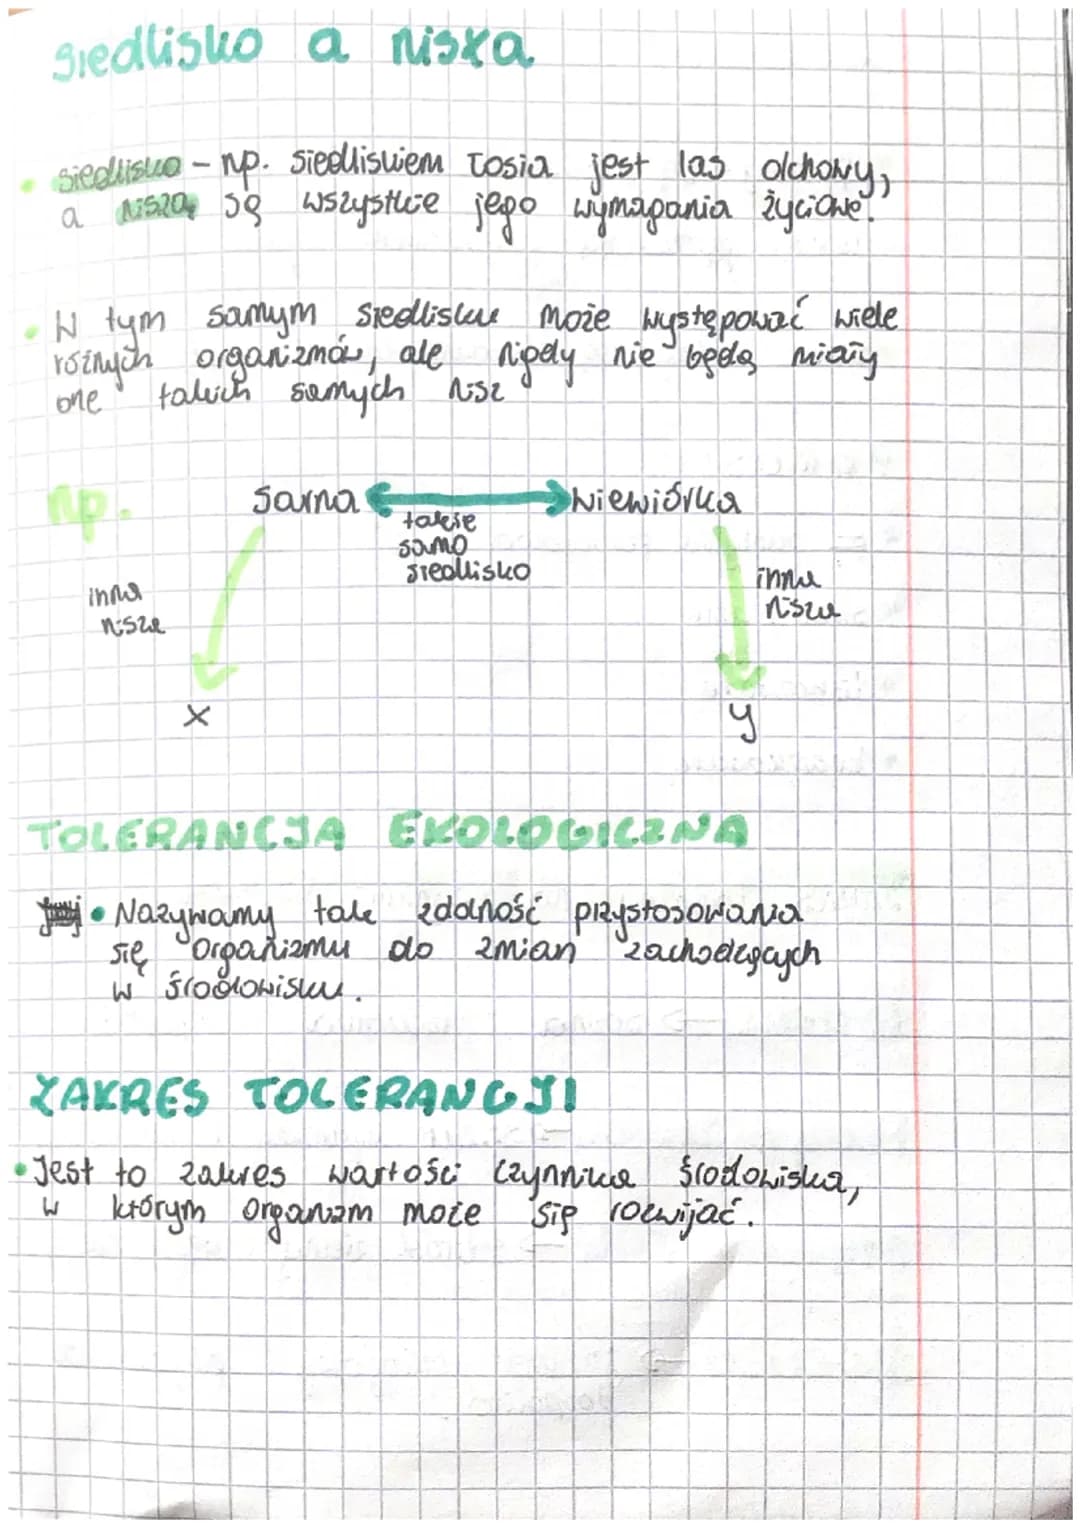 siedlisko a nisza
siedlisko - np. siedliskiem łosia jest las olchowy,
a niszą są wszystkie jego wymagania życiowe.
W tym samym siedlisku może występować wiele
różnych organizmów, ale nigdy nie będą miały
one takich samych nisz
np.
sarna
wiewiórka
takie
samo
siedlisko
inna
nisza
inna
nisza
x
y
TOLERANCJA EKOLOGICZNA
Nazywamy tak zdolność przystosowania
się organizmu do zmian zachodzących
w środowisku.
ZAKRES TOLERANCJI
Jest to zakres wartości czynnika środowiska,
w którym organizm może się rozwijać.